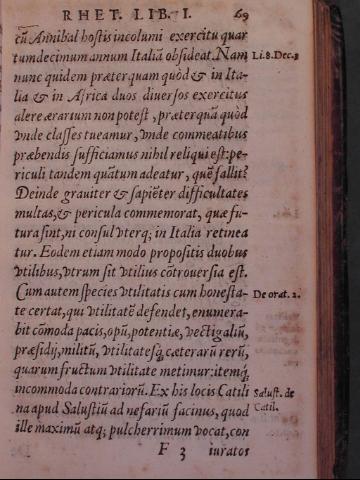 RHET. LIB. I. 69
cū Annibal hostis incolumi exercitu quar
tumdecimum annum Italiā obsideat. Nam Li.8. Dec.3
nunc quidem præterquam quòd & in Ita-
lia & in Africa duos diuersos exercitus
alere ærarium non potest, præterquā quòd
vnde classes tueamur, vnde commeatibus
præbendis sufficiamus nihil reliqui est: pe-
riculi tandem quātum adeatur, quē fallit?
Deinde grauiter & sapiēter difficultates
multas, & pericula commemorat, quæ fu-
tura sint, ni consul vterq; in Italia retinea
tur. Eodem etiam modo propositis duobus
vtilibus, vtrum sit vtilius cōtrouersia est.
Cum autem species vtilitatis cum honesta- De orat. 2.
te certat, qui vtilitatē defendet, enumera-
bit cōmoda pacis, opū, potentiæ, vectigaliū,
præsidij, militū, vtilitatesq́; cæterarū rerū,
quarum fructum vtilitate metimur: itemq́;
incommoda contrariorū. Ex his locis Catili Salust. de
na apud Salustiū ad nefariū facinus, quod Catil.
ille maximū atq; pulcherrimum vocat, con
F 3 iuratos